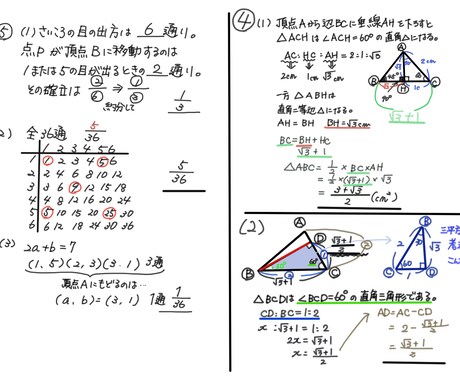 ⑤ (1) さいころの目の出方は 6 通り。
点Pが頂点Bに移動するのは
1または5の目が出るときの 2 通り。
その確立は 2/6 ⇒ 1/3
約分して
1/3
2) 全36通 5/36
1 2 3 4 5 6
1 1 2 3 4 5 6
2 2 4 6 8 10 12
3 3 6 9 12 15 18
4 4 8 12 16 20 24
5 5 10 15 20 25 30
6 6 12 18 24 30 36
5/36
(3) 2a+b=7
(1,5)(2,3)(3,1) 3通
頂点Aにもどるのは…
(a,b)=(3,1) 1通 1/36
④ (1) 頂点Aから辺BCに垂線AHを下すと
△ACHは∠ACH=60°の直角△になる。
AC:HC:AH=2:1:√3
2cm 1cm √3cm
一方△ABHは
直角二等辺△になる。
AH=BH BH=√3cm
BC=BH+HC
√3+1
△ABC=1/2×BC×AH
=1/2×(√3+1)×√3
=(3+√3)/2 (cm²)
A
2cm
B H C
√3+1
(2)
A
D
B C
√3+1
60°
B
2 √3
60
C D
三平
△BCDは∠BCD=60°の直角三角形である。
CD:BC=1:2
x:√3+1=1:2
2x=√3+1
x=(√3+1)/2
AD=AC-CD
=2-(√3+1)/2